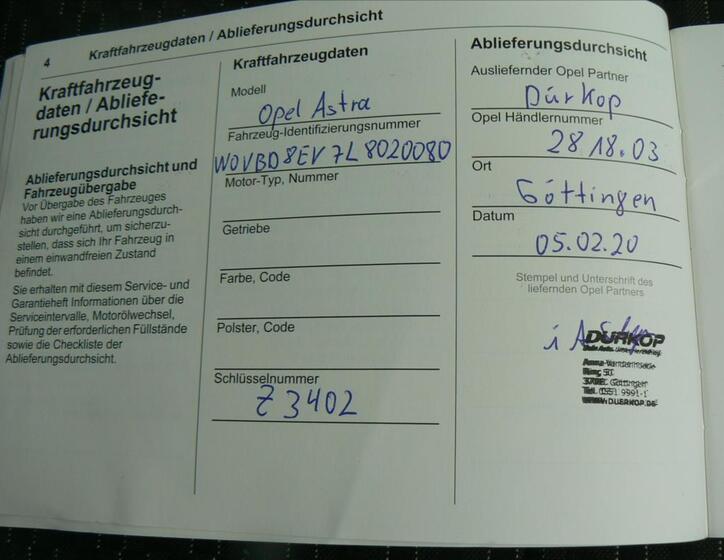 4
Kraftfahrzeugdaten / Ablieferungsdurchsicht
Kraftfahrzeug-
daten / Abliefe-
rungsdurchsicht
Ablieferungsdurchsicht und
Fahrzeugübergabe
Vor Übergabe des Fahrzeuges
haben wir eine Ablieferungsdurch-
sicht durchgeführt, um sicherzu-
stellen, dass sich Ihr Fahrzeug in
einem einwandfreien Zustand
befindet.
Sie erhalten mit diesem Service- und
Garantieheft Informationen über die
Serviceintervalle, Motorölwechsel,
Prüfung der erforderlichen Füllstände
sowie die Checkliste der
Ablieferungsdurchsicht.
Kraftfahrzeugdaten
Modell
Opel Astra
Fahrzeug-Identifizierungsnummer
W0VBD8EV7L8020080
Motor-Typ, Nummer
Getriebe
Farbe, Code
Polster, Code
Schlüsselnummer
Z3402
Ablieferungsdurchsicht
Ausliefernder Opel Partner
Dürkop
Opel Händlernummer
28 18.03
Ort
Göttingen
Datum
05.02.20
Stempel und Unterschrift des
liefernden Opel Partners
i A
DÜRKOP
Ring 50
Göttingen
Tel. 0551 9991-1
WWW.DUERKOP.DE